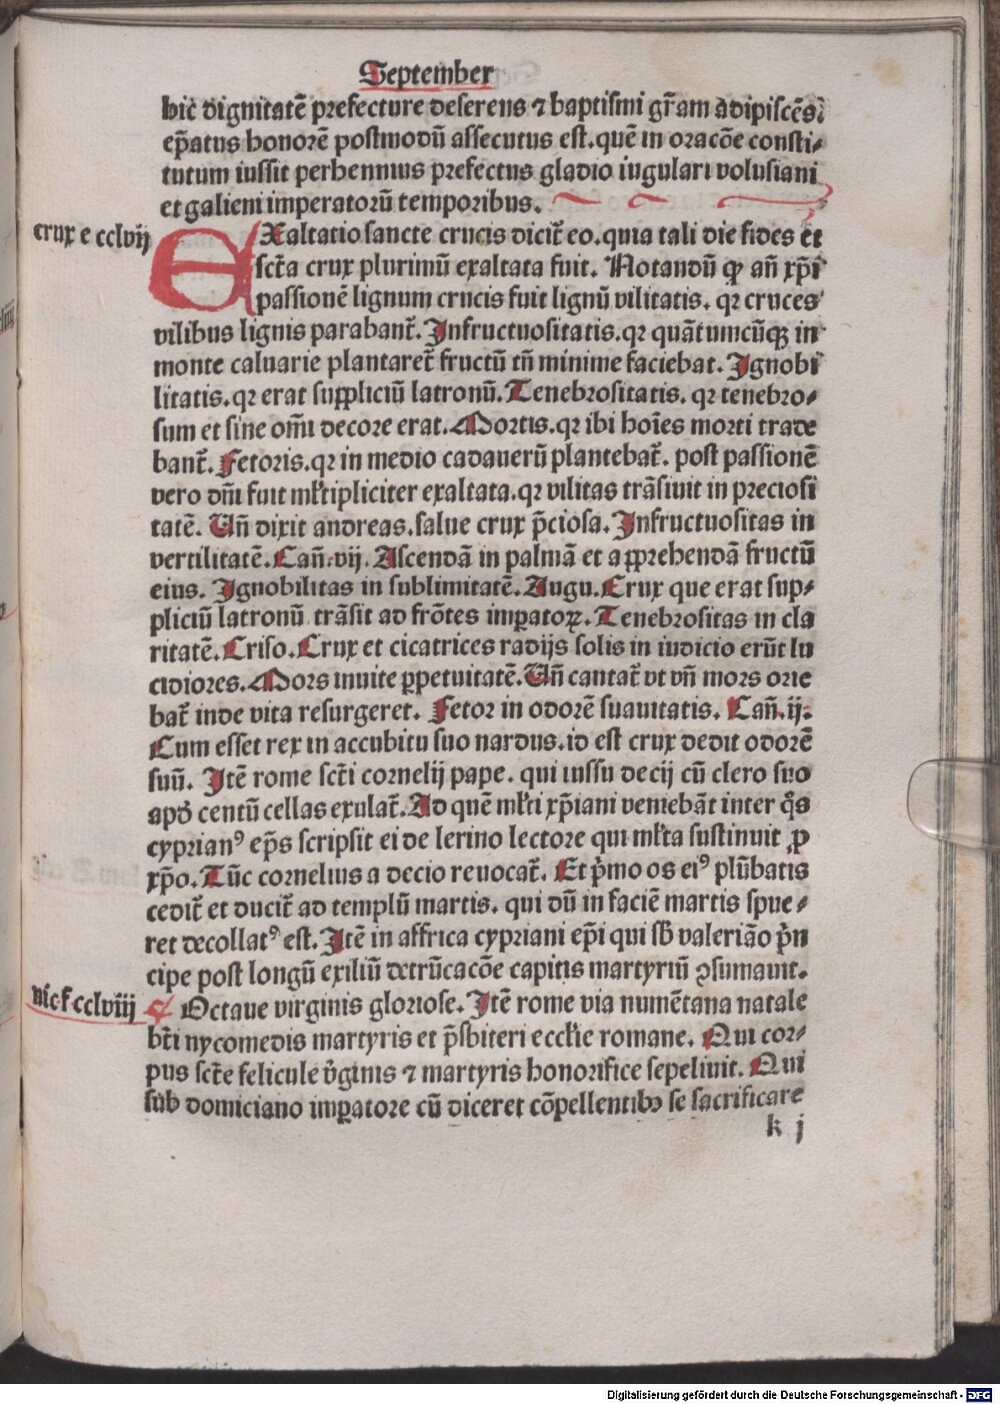 September
hic dignitatē prefecture deserens ⁊ baptismi gr̄am adipiscēs.
ep̄atus honorē postmodū assecutus est. quē in oracōe consti⸗
tutum iussit perhennius prefectus gladio iugulari volusiani
et galieni imperatorū temporibus.
crux e cclvij
EXaltatio sancte crucis dicit̄ eo. quia tali die fides et
sct̄a crux plurimū exaltata fuit. Notandū ꝙ añ xp̄i
passionē lignum crucis fuit lignū vilitatis. qꝛ cruces
vilibus lignis parabant̄. Infructuositatis. qꝛ quātumcūqꝫ in
monte caluarie plantaret̄ fructū tñ minime faciebat. Ignobi
litatis. qꝛ erat suppliciū latronū. Tenebrositatis. qꝛ tenebro⸗
sum et sine om̄i decore erat. Mortis. qꝛ ibi hoīes morti trade
bant̄. Fetoris. qꝛ in medio cadauerū plantebat̄. post passionē
vero dm̄i fuit ml̄tipliciter exaltata. qꝛ vilitas trāsiuit in preciosi
tatē. Vñ dixit andreas. salue crux p̄ciosa. Infructuositas in
vertilitatē. Cañ. vij. Ascendā in palmā et apprehendā fructū
eius. Ignobilitas in sublimitatē. Augu. Crux que erat sup⸗
pliciū latronū trāsit ad frōtes imꝑatoꝝ. Tenebrositas in cla
ritatē. Criso. Crux et cicatrices radijs solis in iudicio erūt lu
cidiores. Mors inuite ꝑpetuitatē. Vñ cantat̄ vt vñ mors orie
bat̄ inde vita resurgeret. Fetor in odorē suauitatis. Cañ. ij.
Cum esset rex in accubitu suo nardus. id est crux dedit odorē
suū. Itē rome sct̄i cornelij pape. qui iussu decij cū clero suo
apd̄ centū cellas exulat̄. Ad quē ml̄ti xp̄iani veniebāt inter q̄s
cyprianꝰ ep̄s scripsit ei de lerino lectore qui ml̄ta sustinuit ꝓ
xp̄o. Tūc cornelius a decio reuocat̄. Et p̄mo os eiꝰ plūbatis
cedit̄ et ducit̄ ad templū martis. qui dū in faciē martis spue⸗
ret decollatꝰ est. Itē in affrica cypriani ep̄i qui sb̄ valeriāo p̄n
cipe post longū exiliū detrūcacōe capitis martyriū ꝯsumauit.
nic f cclviij
Octaue virginis gloriose. Itē rome via numētana natale
bt̄i nycomedis martyris et p̄sbiteri eccl̄ie romane. Qui cor⸗
pus sct̄e felicule v̄ginis ⁊ martyris honorifice sepeliuit. Qui
sub domiciano imꝑatore cū diceret cōpellentibꝫ se sacrificare
k j
Digitalisierung gefördert durch die Deutsche Forschungsgemeinschaft - DFG